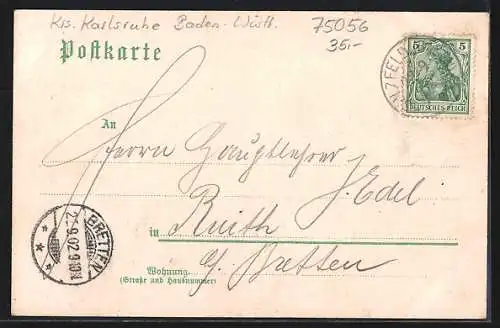 Krs. Karlsruhe Baden-Württ.
75056
35,-
Postkarte
5 5
DEUTSCHES REICH
An
Herrn Hauptlehrer
J. Edel
in Ruith
b/ Bretten
Wohnung
(Straße und Hausnummer)
BRETTEN
2.9.02.9-10